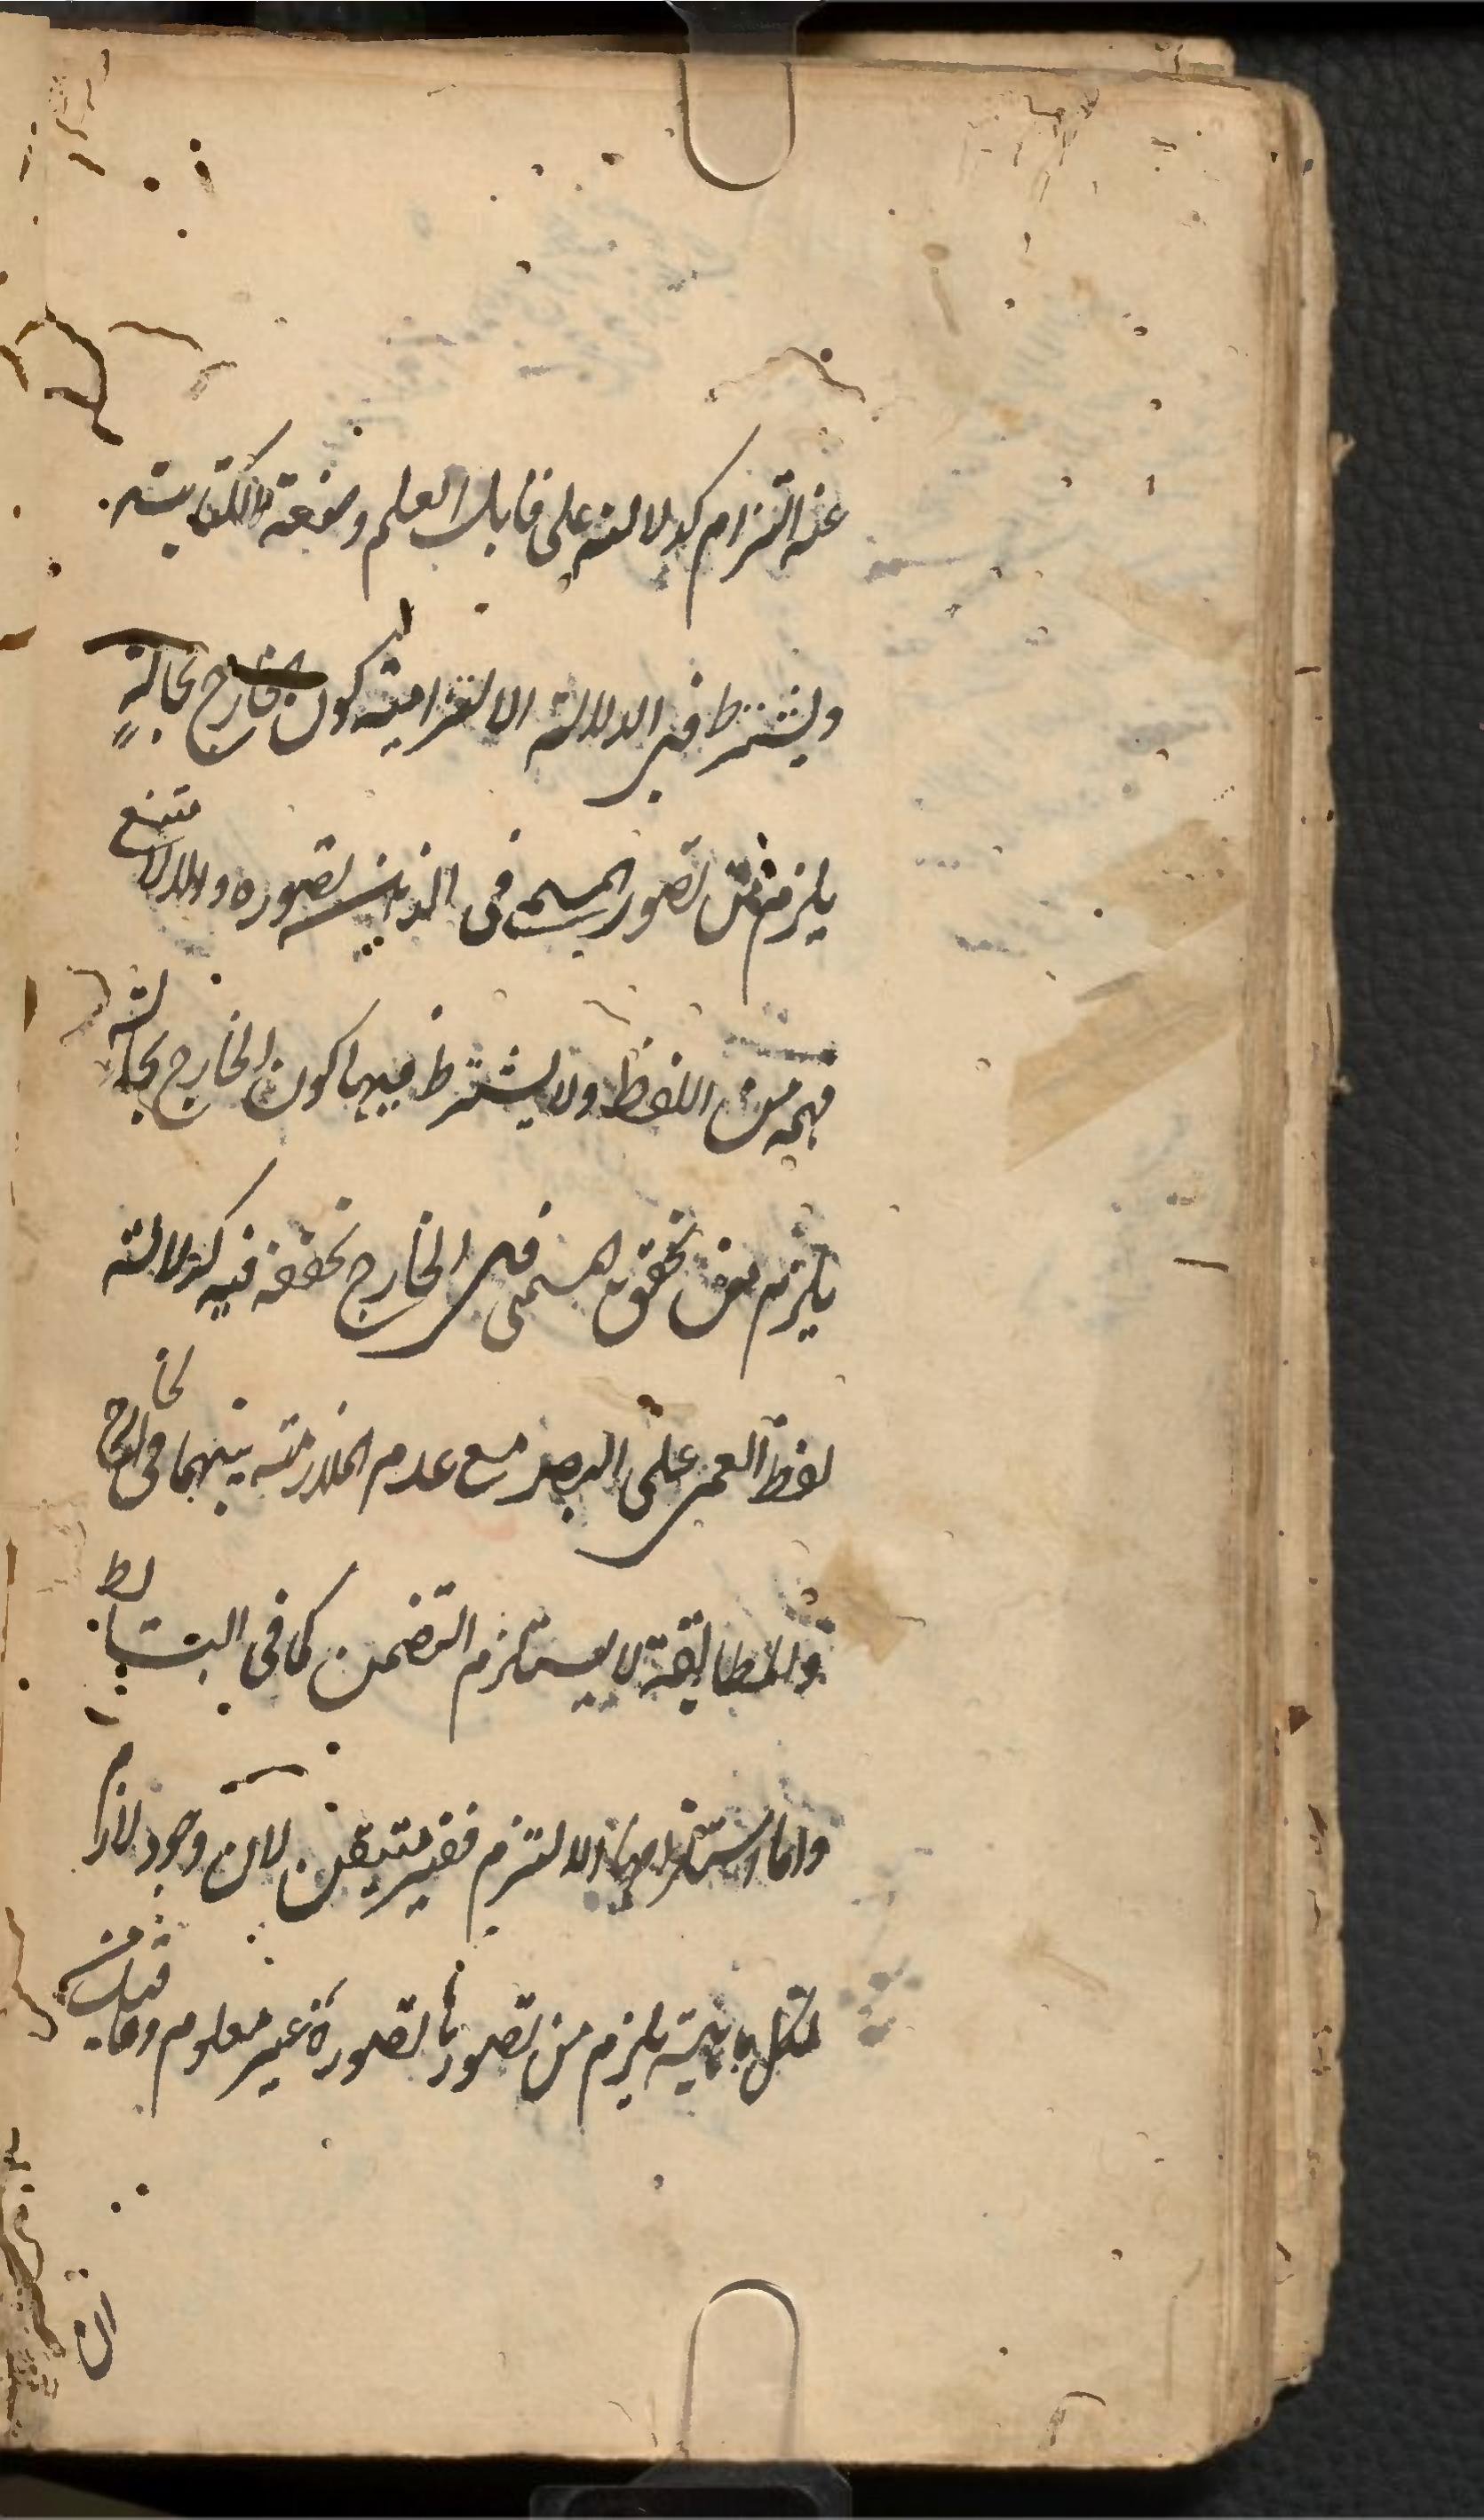 عنه التزام كدلالته على قابل العلم وصنعة الكتابة
ويشترط في الدلالة الالتزامية كون الخارج بحالة
يلزم من تصور المسمى في الذهن تصوره والا لامتنع
فهمه من اللفظ ولا يشترط فيها كون الخارج بحالة
يلزم من تحقق المسمى في الخارج تحققه فيه كدلالة
لفظ العمى على البصر مع عدم الملازمة بينهما في الخارج
والمطابقة لا يستلزم التضمن كما في البسائط
واما استلزامها الالتزام فغير متيقن لان وجود لازم
لكل ماهية يلزم من تصورها تصوره غير معلوم وما قيل من
ان